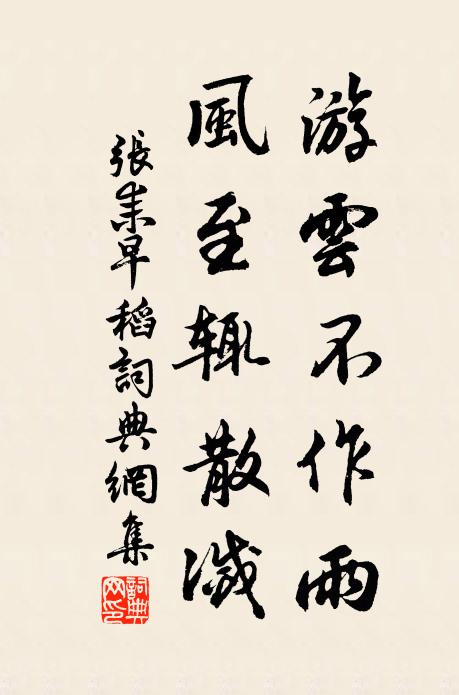 游雲不作雨
風至辄散滅
張耒早稻詞典網集
詞典网印